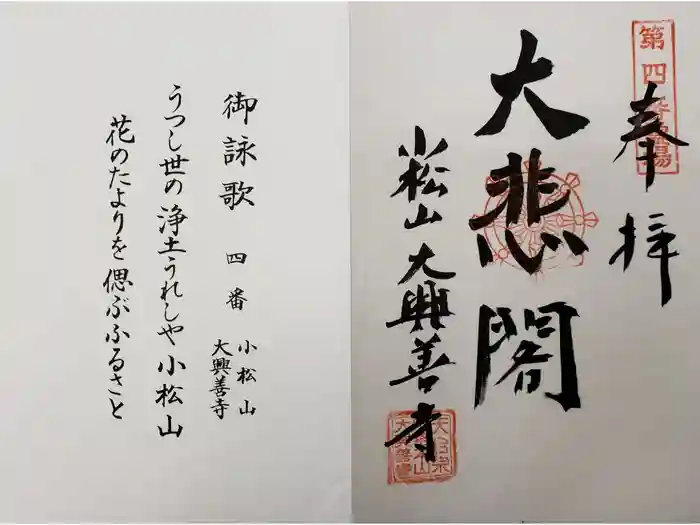 第四番霊場
奉拝
大悲閣
小松山 大興善寺
御詠歌 四番 小松山
大興善寺
うつし世の 浄土うれしや 小松山
花のたよりを 偲ぶふるさと